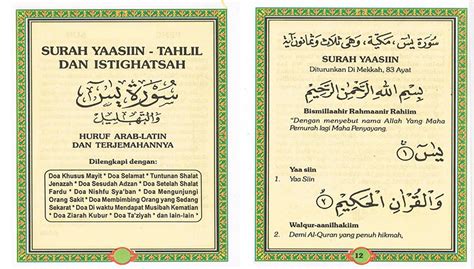 SURAH YAASIIN - TAHLIL
DAN ISTIGHATSAH
سورة يس
والتهليل
HURUF ARAB-LATIN
DAN TERJEMAHANNYA
Dilengkapi dengan:
Doa Khusus Mayit * Doa Selamat * Tuntunan Shalat
Jenazah * Doa Sesudah Adzan * Doa Setelah Shalat
Fardu * Doa Nishfu Sya'ban * Doa Mengunjungi
Orang Sakit * Doa Membimbing Orang yang Sedang
Sekarat * Doa Di waktu Mendapat Musibah Kematian
* Doa Ziarah Kubur * Doa Ta'ziyah * dan lain-lain *
سورة يس، مكية، وهي ثلاث وثمانون آية
SURAH YAASIIN
Diturunkan Di Mekkah, 83 Ayat
بِسْمِ اللهِ الرَّحْمٰنِ الرَّحِيْمِ
Bismillaahir Rahmaanir Rahiim
"Dengan menyebut nama Allah Yang Maha
Pemurah lagi Maha Penyayang.
يٰسۤ ۝١
Yaa siin
1. Yaa Siin
وَالْقُرْاٰنِ الْحَكِيْمِ ۝٢
Walqur-aanilhakiim
2. Demi Al-Quran yang penuh hikmah,
12